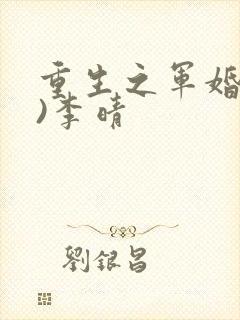 重生之军婚
)李晴
劉銀昌